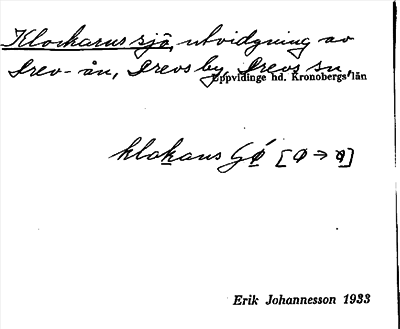 Klockarus sjö, utvidgning av
Drev-ån, Drevs by, Drevs sn,
Uppvidinge hd. Kronobergs län
klokaus
Erik Johannesson 1933